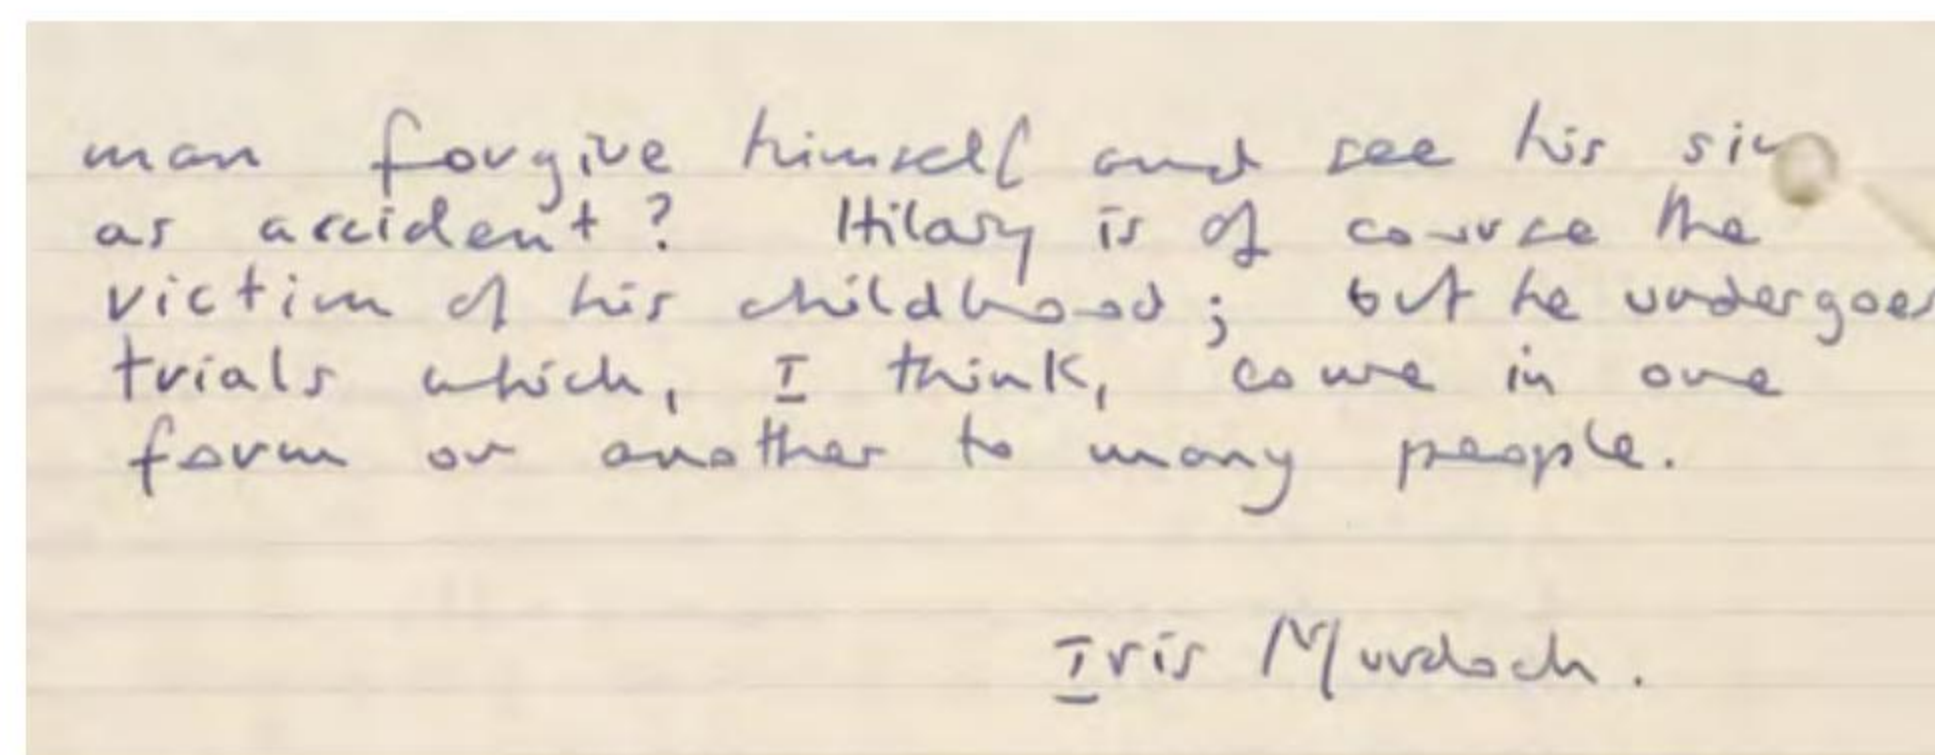 man forgive himself and see his sin
as accident? Hilary is of course the
victim of his childhood; but he undergoes
trials which, I think, come in one
form or another to many people.
Iris Murdoch.